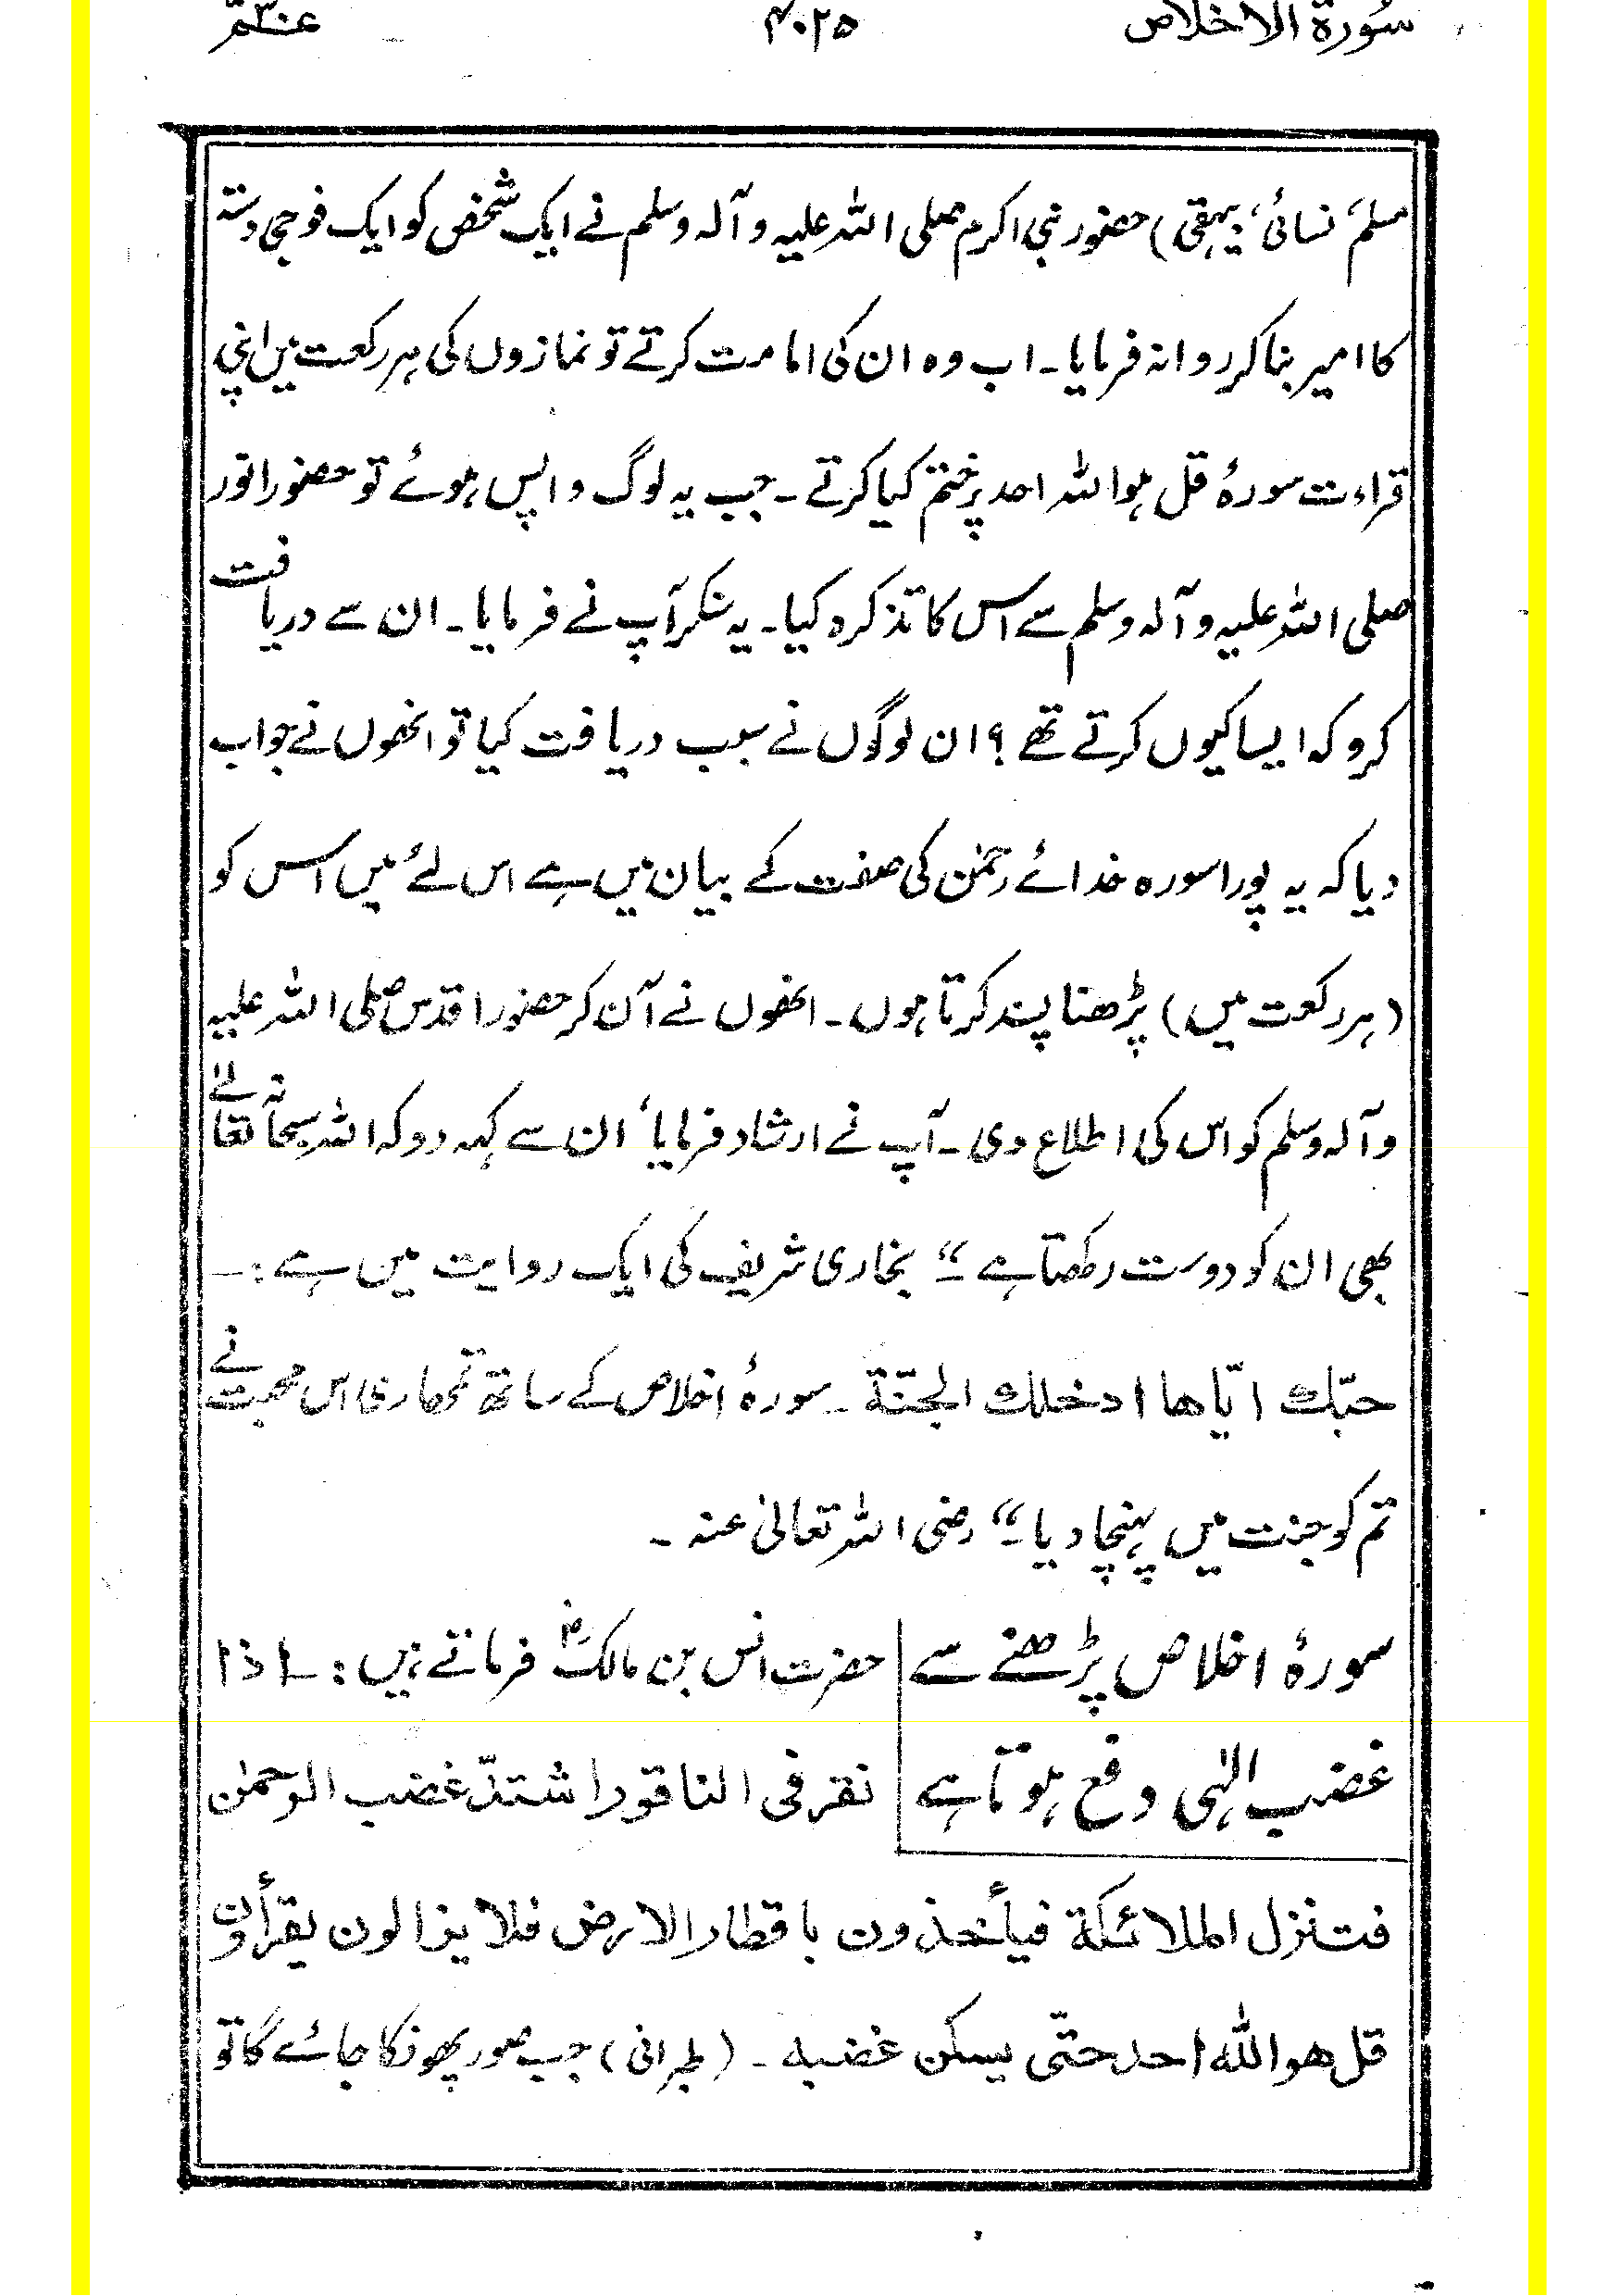 سُورة الاخلاص ۴۰۲۵ عمّ
مسلم، نسائی، بیہقی) حضور نبی اکرم صلی اللہ علیہ و آلہ وسلم نے ایک شخص کو ایک فوجی دستہ
کا امیر بنا کر روانہ فرمایا۔ اب وہ ان کی امامت کرتے تو نمازوں کی ہر رکعت میں اپنی
قراءت سورۂ قل ہو اللہ احد پر ختم کیا کرتے۔ جب یہ لوگ واپس ہوئے تو حضور انور
صلی اللہ علیہ و آلہ وسلم سے اس کا تذکرہ کیا۔ یہ سنکر آپ نے فرمایا۔ ان سے دریافت
کرو کہ ایسا کیوں کرتے تھے؟ ان لوگوں نے سبب دریافت کیا تو انھوں نے جواب
دیا کہ یہ پورا سورہ خدائے رحمٰن کی صفت کے بیان میں ہے اس لئے میں اس کو
(ہر رکعت میں) پڑھنا پسند کرتا ہوں۔ انھوں نے آن کر حضور اقدس صلی اللہ علیہ
و آلہ وسلم کو اس کی اطلاع دی۔ آپ نے ارشاد فرمایا، ان سے کہہ دو کہ اللہ سبحانہ تعالےٰ
بھی ان کو دوست رکھتا ہے۔“ بخاری شریف کی ایک روایت میں ہے :۔
حبّك ايّاها ادخلك الجنّة۔ سورۂ اخلاص کے ساتھ تمھاری اس محبت نے
تم کو جنت میں پہنچا دیا۔“ رضی اللہ تعالیٰ عنہ۔
سورۂ اخلاص پڑھنے سے
غضب الٰہی دفع ہوتا ہے
حضرت انس بن مالکؓ فرماتے ہیں :۔ اذا
نقر فی الناقور اشتدّ غضب الرحمٰن
فتنزل الملائكة فيأخذون باقطار الارض فلا يزالون يقرأون
قل هو الله احد حتّى يسكن غضبه۔ (طبرانی) جب صور پھونکا جائے گا تو